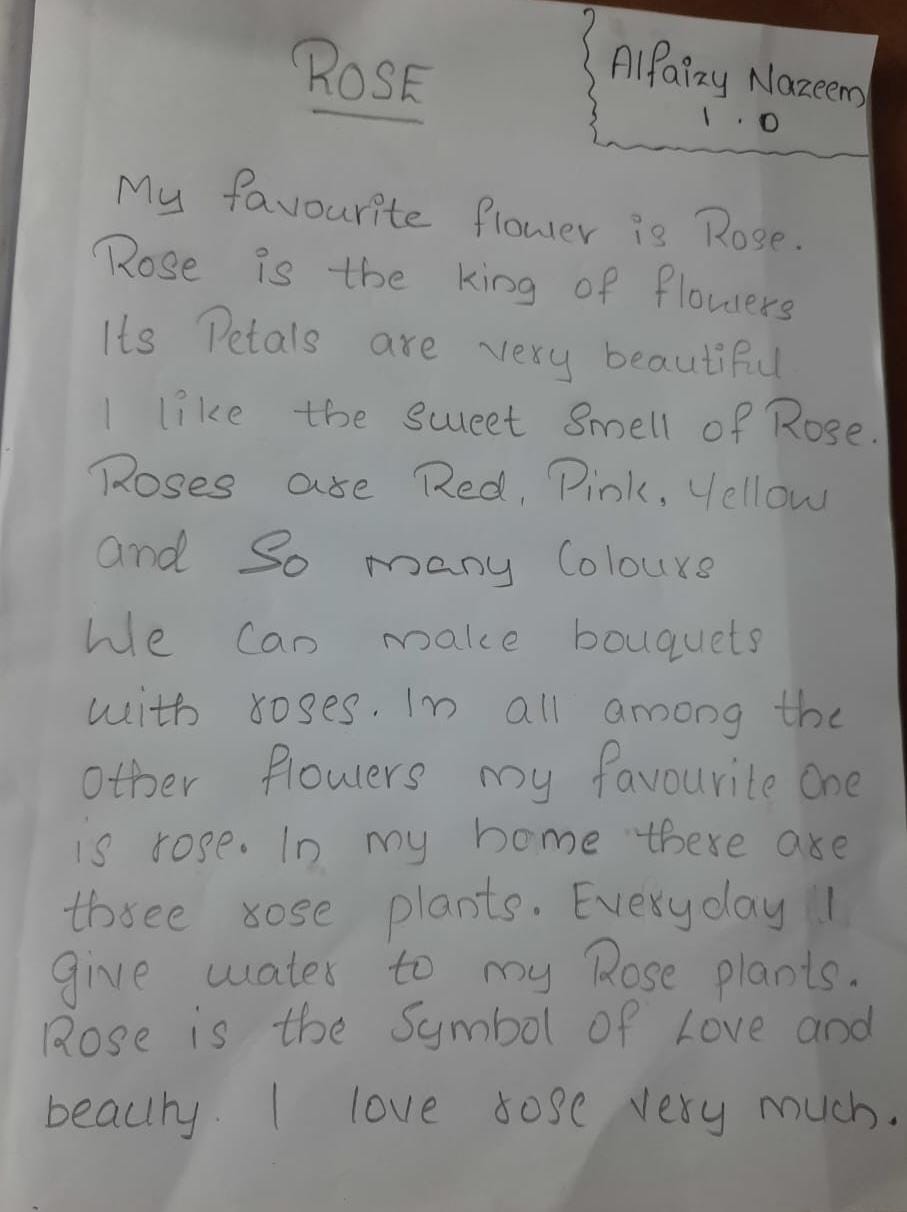 ROSE
Alfaizy Nazeem
1.0
My favourite flower is Rose.
Rose is the king of flowers
Its Petals are very beautiful
I like the sweet smell of Rose.
Roses are Red, Pink, Yellow
and So many Colours
We can make bouquets
with roses. In all among the
other flowers my favourite one
is rose. In my home there are
three rose plants. Everyday I
give water to my Rose plants.
Rose is the Symbol of Love and
beauty. I love rose very much.